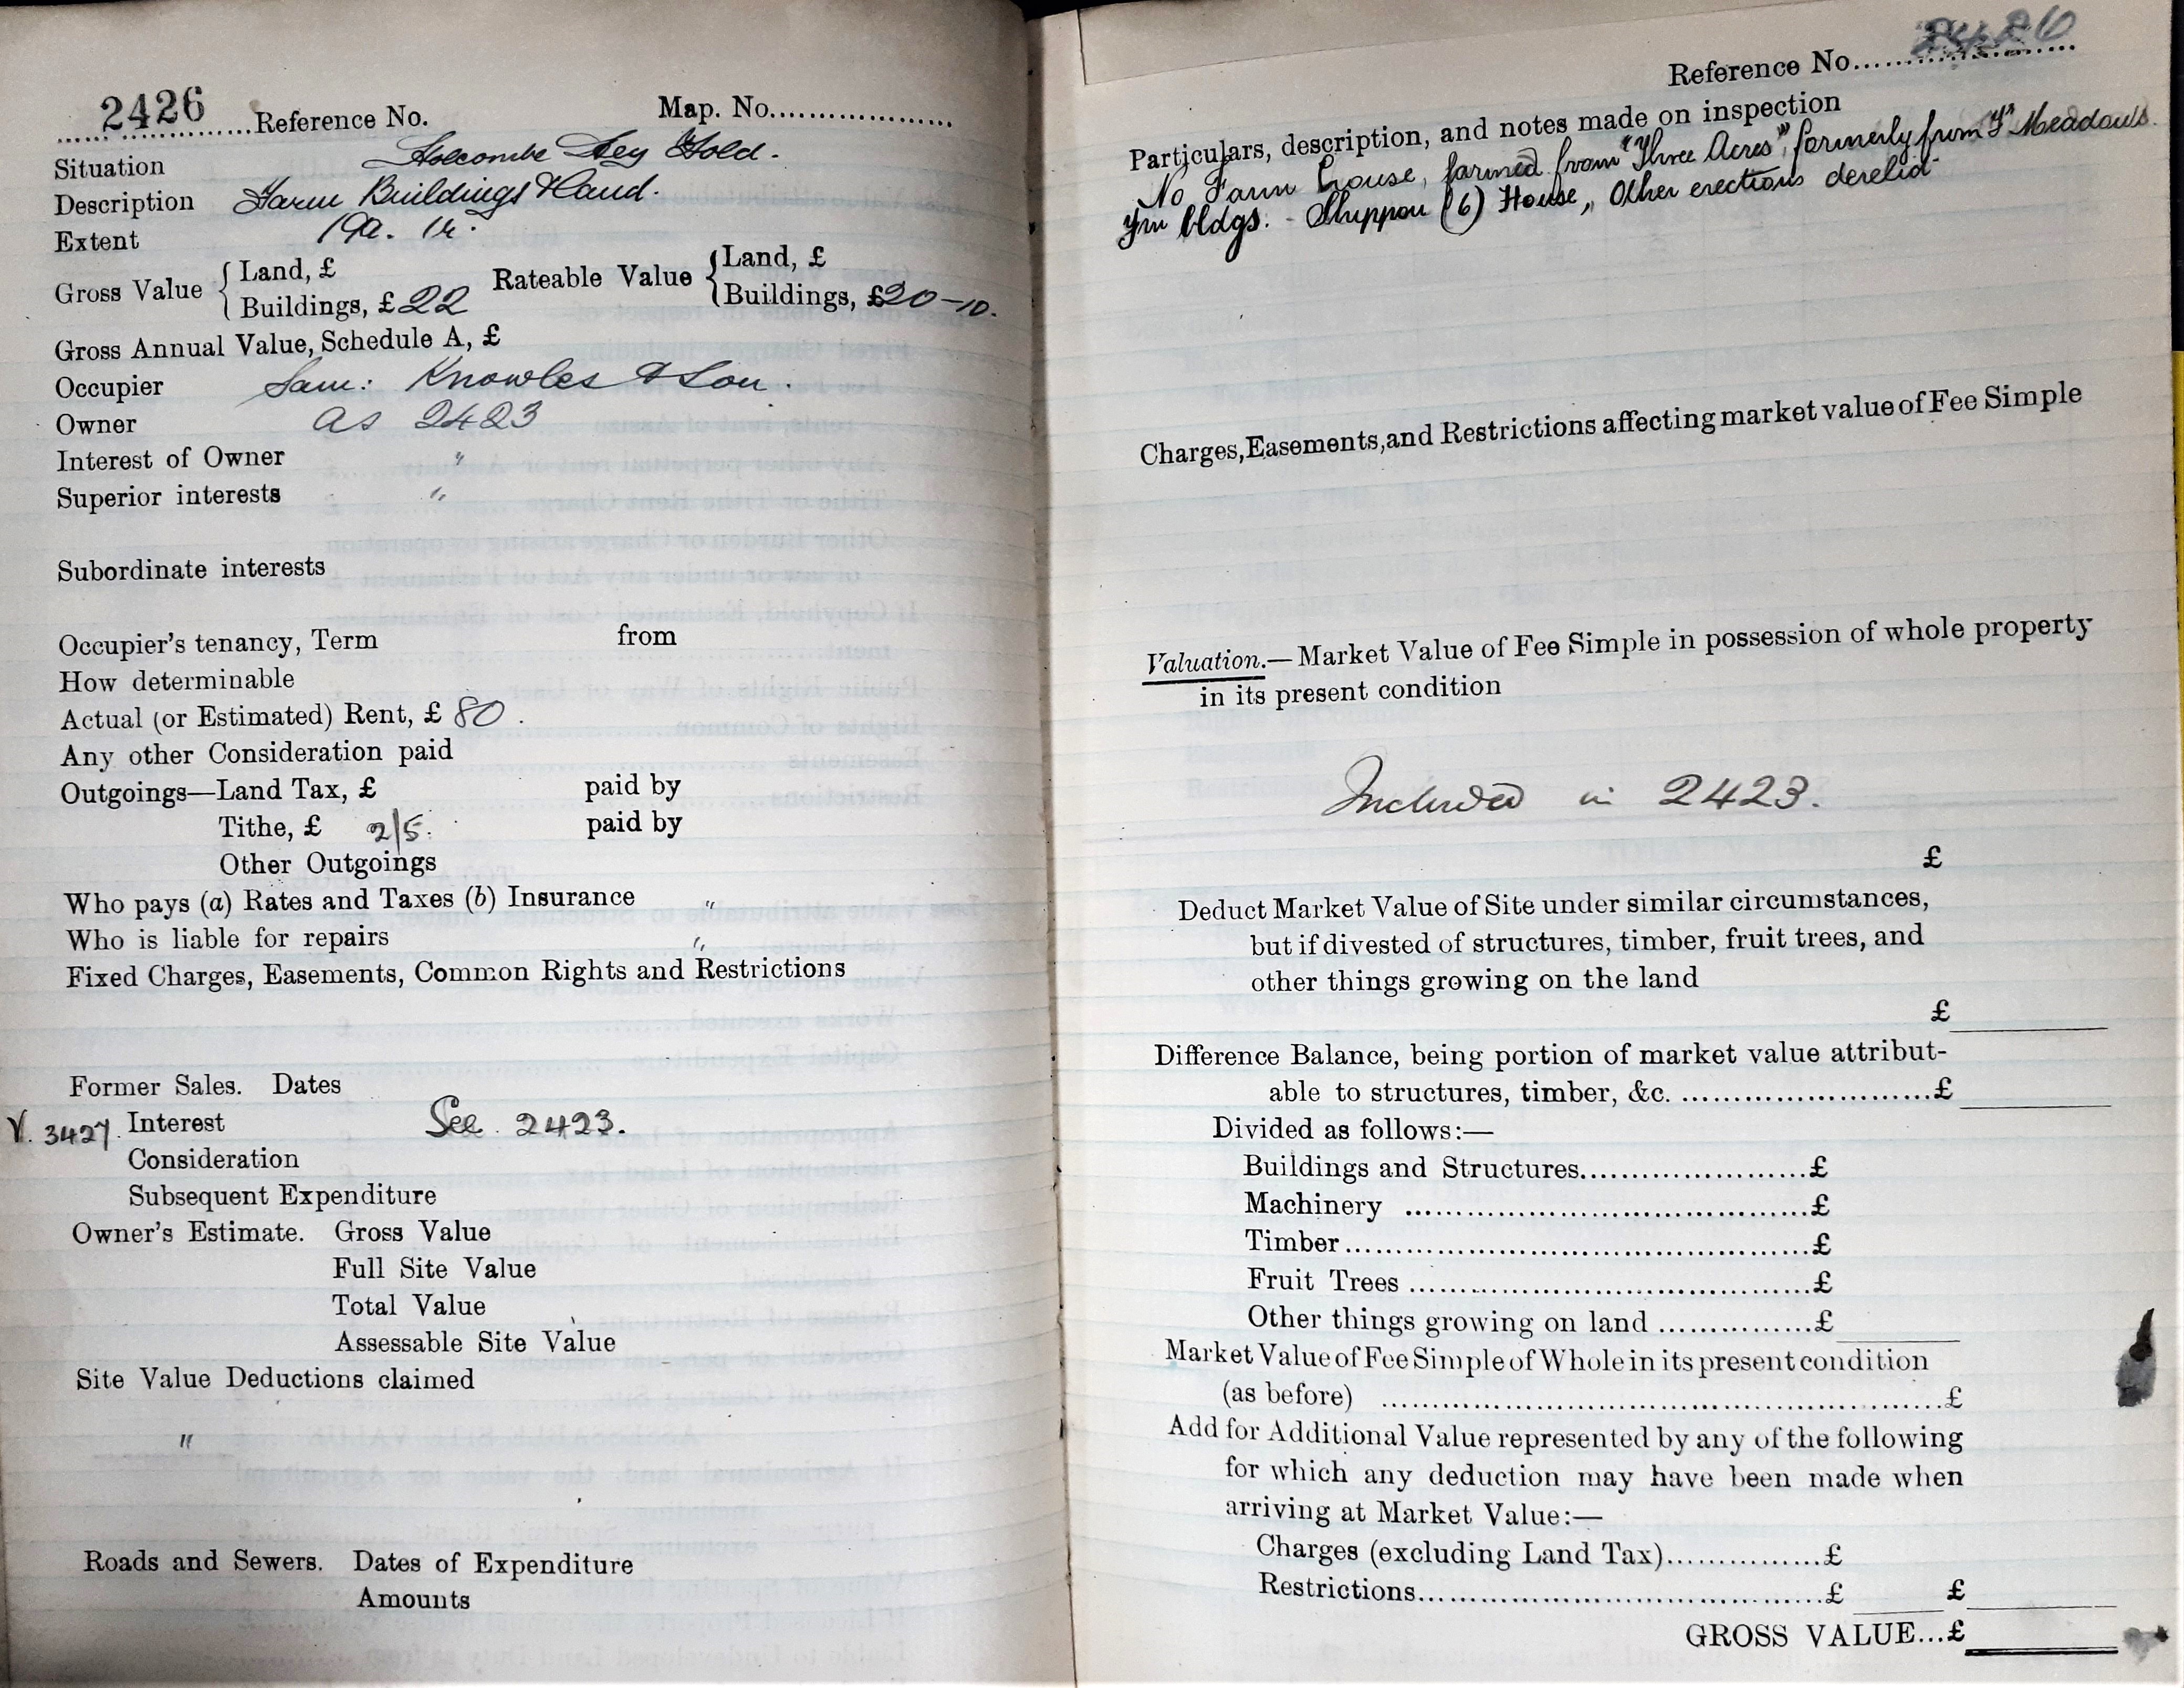 2426 Reference No. Map. No.
Situation Holcombe Hey Fold.
Description Farm Buildings & Land.
Extent 19a. 1r.
Gross Value { Land, £ Rateable Value { Land, £
Buildings, £ 22 Buildings, £20-10.
Gross Annual Value, Schedule A, £
Occupier Sam: Knowles & Son.
Owner as 2423
Interest of Owner "
Superior interests "
Subordinate interests
Occupier's tenancy, Term from
How determinable
Actual (or Estimated) Rent, £ 80.
Any other Consideration paid
Outgoings—Land Tax, £ paid by
Tithe, £ 2/5. paid by
Other Outgoings
Who pays (a) Rates and Taxes (b) Insurance "
Who is liable for repairs "
Fixed Charges, Easements, Common Rights and Restrictions
Former Sales. Dates
V. 3427. Interest See 2423.
Consideration
Subsequent Expenditure
Owner's Estimate. Gross Value
Full Site Value
Total Value
Assessable Site Value
Site Value Deductions claimed
"
Roads and Sewers. Dates of Expenditure
Amounts
Reference No. 2426
Particulars, description, and notes made on inspection
No Farm house, farmed from "Three Acres", formerly from "Meadows.
bldgs. - Shippon (6) House, Other erections derelict
Charges, Easements, and Restrictions affecting market value of Fee Simple
Valuation.—Market Value of Fee Simple in possession of whole property
in its present condition
Included in 2423.
£
Deduct Market Value of Site under similar circumstances,
but if divested of structures, timber, fruit trees, and
other things growing on the land
£
Difference Balance, being portion of market value attribut-
able to structures, timber, &c. £
Divided as follows:—
Buildings and Structures £
Machinery £
Timber £
Fruit Trees £
Other things growing on land £
Market Value of Fee Simple of Whole in its present condition
(as before) £
Add for Additional Value represented by any of the following
for which any deduction may have been made when
arriving at Market Value:—
Charges (excluding Land Tax) £
Restrictions £ £
GROSS VALUE...£